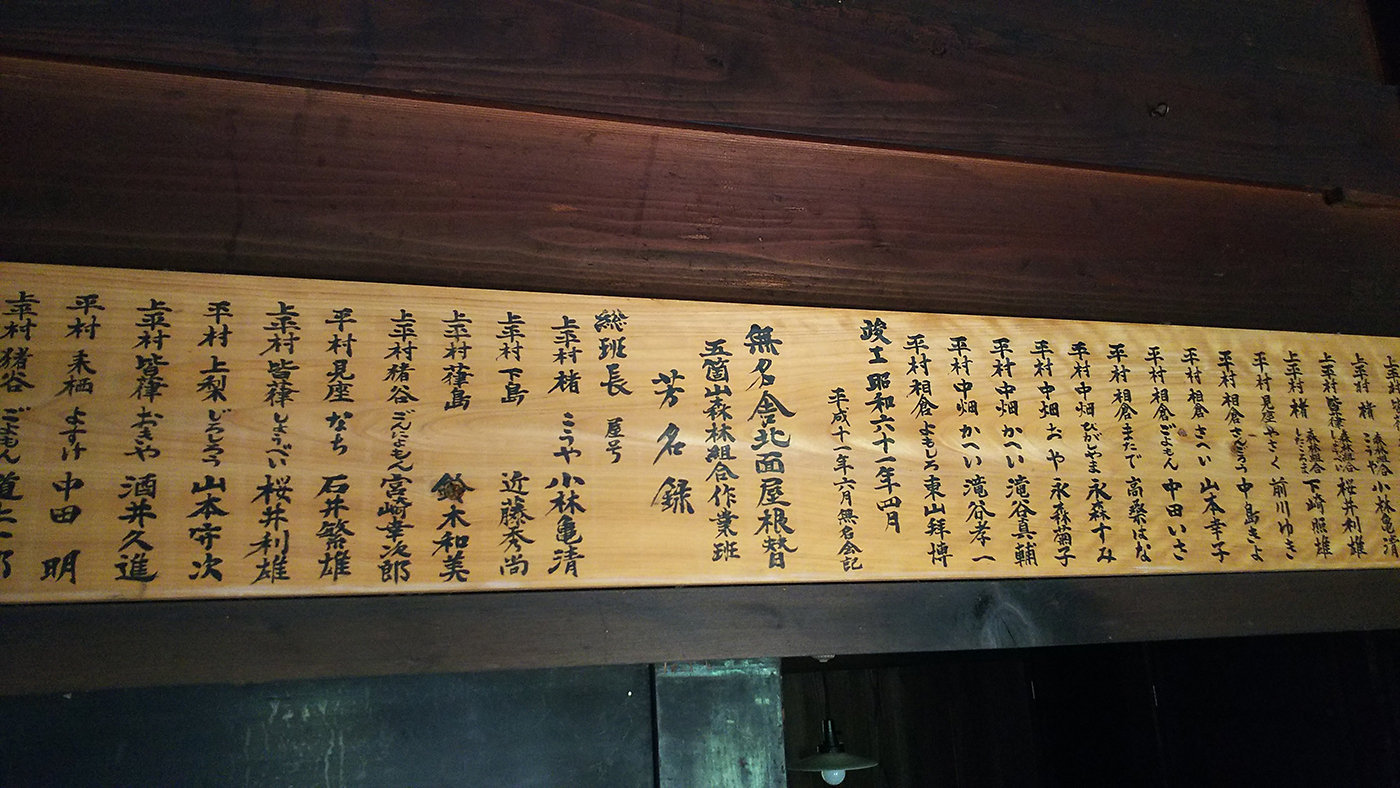 上平村 楮 森林組合 こうや 小林亀清
上平村 皆葎 森林組合 しょうべい 桜井利雄
上平村 楮 森林組合 下崎照雄
平村 見座 やさく 前川ゆき
平村 相倉 さんごろう 中島きよ
平村 相倉 さへい 山本幸子
平村 相倉 ごよもん 中田いさ
平村 相倉 またで 高桑はな
平村 中畑 ひがしやま 永森すみ
平村 中畑 おや 永森菊子
平村 中畑 かへい 滝谷真輔
平村 中畑 かへい 滝谷孝一
平村 相倉 よもしろ 東山拝博
竣工 昭和六十一年四月
平成十一年六月無名舎記
無名舎北面屋根替
五箇山森林組合作業班
芳名録
総班長 屋号
上平村 楮 こうや 小林亀清
上平村 下島 近藤秀尚
上平村 葎島 鈴木和美
上平村 猪谷 ごんにょもん 宮崎幸次郎
平村 見座 なち 石井繁雄
上平村 皆葎 しょうべい 桜井利雄
平村 上梨 じろしろう 山本守次
上平村 皆葎 おきや 酒井久進
平村 来栖 よすけ 中田 明
上平村 猪谷 ごよもん 道上